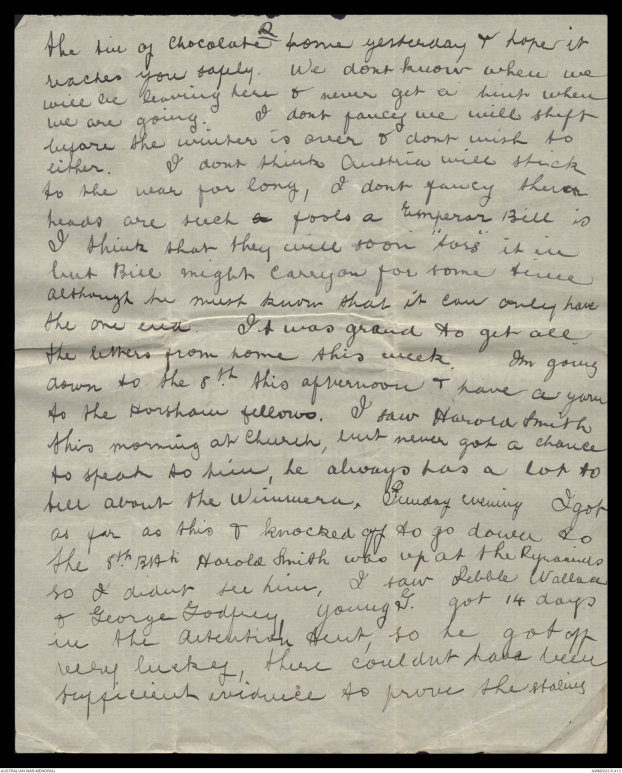 the tin of chocolate & home yesterday & hope it
reaches you safely. We dont know when we
will be leaving here & never get a hint when
we are going. I dont fancy we will shift
before the winter is over & dont wish to
either. I dont think Austria will stick
to the war for long, I dont fancy their
heads are such fools a Emperor Bill is
I think that they will soon "toss" it in
but Bill might carry on for some time
although he must know that it can only have
the one end. It was grand to get all
the letters from home this week. Im going
down to the 8th this afternoon & have a yarn
to the Horsham fellows. I saw Harold Smith
this morning at Church, but never got a chance
to speak to him, he always has a lot to
tell about the Wimmera. Sunday evening I got
as far as this & knocked off to go down to
the 8th Btn Harold Smith was up at the Pyramids
so I didnt see him, I saw Wallace
& George Godfrey, young G. got 14 days
in the detention tent, so he got off
very luckey, there couldnt have been
sufficient evidence to prove the stabing
AUSTRALIAN WAR MEMORIAL
AWM2022.6.413